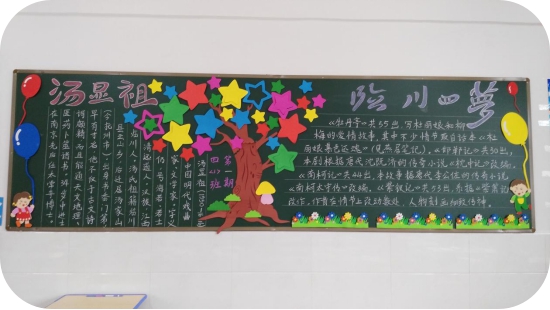 汤显祖
第一期
汤显祖(1550-1616)
中国明代戏曲
家、文学家。字义
仍,号海若、若士
清远道人,汉族,江西
临川人,汤氏祖籍临川
县云山乡,后迁居汤家山
(今抚州市)。出身书香门第
早有才名,他不仅于古文诗
词颇精,而且能通天文地理、
医药卜筮诸书。34岁中进士
在南京先后任太常寺博士、
临川四梦
《牡丹亭》共55出,写杜丽娘和柳
梅的爱情故事,其中不少情节取自话本《杜
丽娘慕色还魂》(见《燕居笔记》)。《邯郸记》共30出,
本剧根据唐代沈既济的传奇小说《枕中记》改编。
《南柯记》共44出,本故事据唐代李公佐的传奇小说
《南柯太守传》改编。《紫钗记》共53出,系据《紫箫记》
改作,作者在情节上改动较大,人物刻画细致传神。